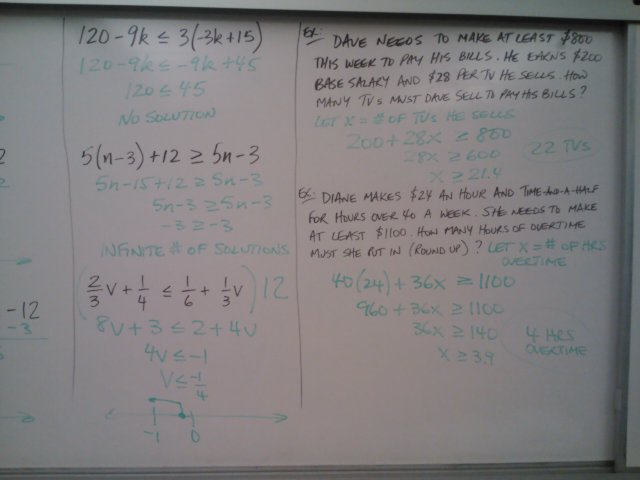 2
2
-12
-3
120-9k ≤ 3(-3k+15)
120-9k ≤ -9k+45
120 ≤ 45
NO SOLUTION
5(n-3)+12 ≥ 5n-3
5n-15+12 ≥ 5n-3
5n-3 ≥ 5n-3
-3 ≥ -3
INFINITE # OF SOLUTIONS
(2/3 v + 1/4 ≤ 1/6 + 1/3 v) 12
8v+3 ≤ 2+4v
4v ≤ -1
v ≤ -1/4
-1 0
EX: DAVE NEEDS TO MAKE AT LEAST $800
THIS WEEK TO PAY HIS BILLS. HE EARNS $200
BASE SALARY AND $28 PER TV HE SELLS. HOW
MANY TVs MUST DAVE SELL TO PAY HIS BILLS?
LET X = # OF TVs HE SELLS
200+28x ≥ 800
28x ≥ 600 22 TVs
x ≥ 21.4
EX: DIANE MAKES $24 AN HOUR AND TIME-AND-A-HALF
FOR HOURS OVER 40 A WEEK. SHE NEEDS TO MAKE
AT LEAST $1100. HOW MANY HOURS OF OVERTIME
MUST SHE PUT IN (ROUND UP)? LET X = # OF HRS
OVERTIME
40(24)+36x ≥ 1100
960+36x ≥ 1100
36x ≥ 140 4 HRS
x ≥ 3.9 OVERTIME